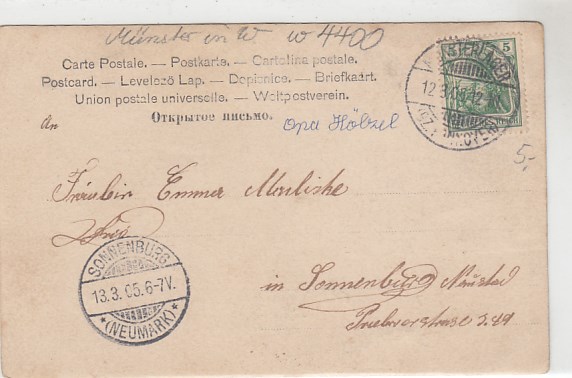 Münster in W W 4400
Carte Postale. — Postkarte. — Cartolina postale.
Postcard. — Levelező Lap. — Dopisnice. — Briefkaart.
Union postale universelle. — Weltpostverein.
Открытое письмо.
An
Opa Hölzel
5
12.3.05.12
5,-
Fräulein Emma
in Sonnenburg Neustadt
SONNENBURG
13.3.05.6-7V.
*(NEUMARK)*